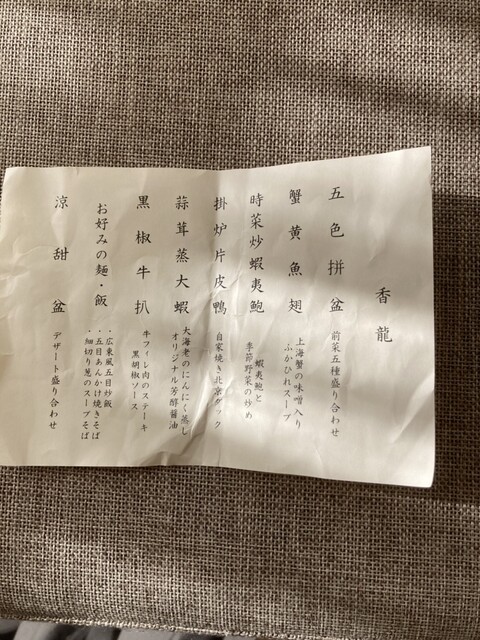 香龍
五色拼盆
前菜五種盛り合わせ
蟹黄魚翅
上海蟹の味噌入り
ふかひれスープ
時菜炒蝦夷鮑
蝦夷鮑と
季節野菜の炒め
掛炉片皮鴨
自家焼き北京ダック
蒜茸蒸大蝦
大海老のにんにく蒸し
オリジナル芳醇醤油
黒椒牛扒
牛フィレ肉のステーキ
黒胡椒ソース
お好みの麺・飯
・広東風五目炒飯
・五目あんかけ焼きそば
・細切り葱のスープそば
涼甜盆
デザート盛り合わせ